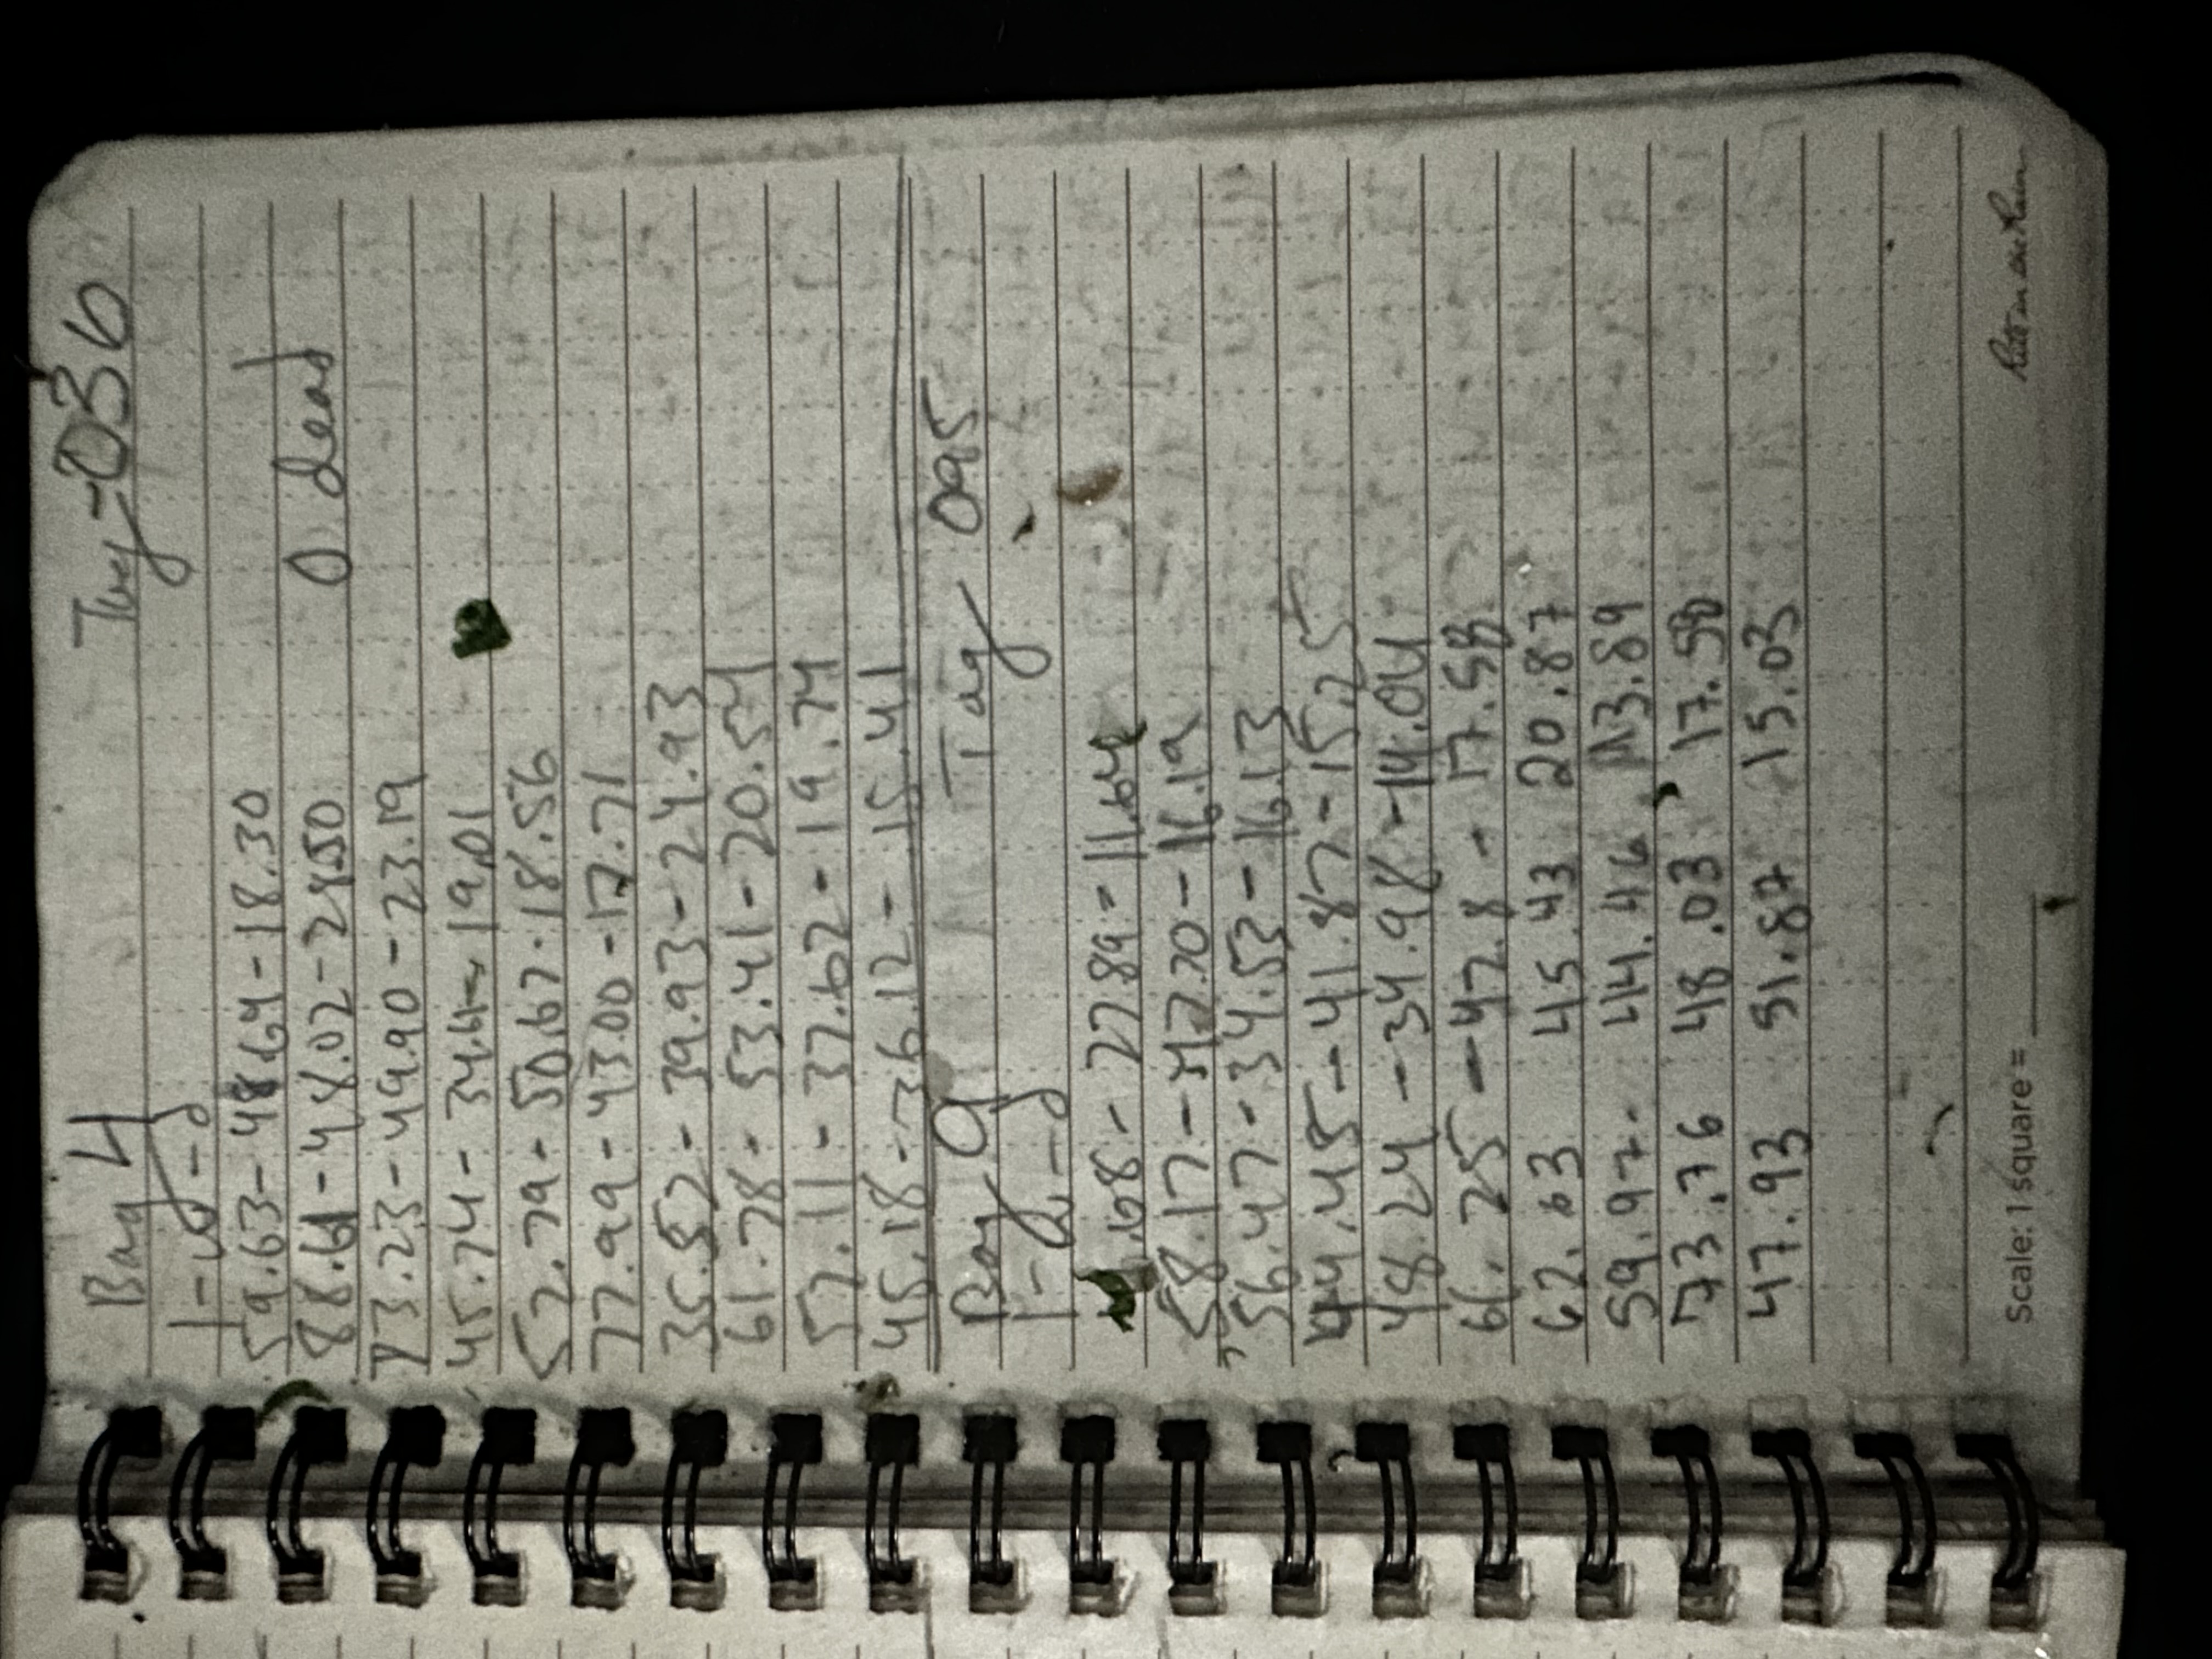 Bag 4 Tag - 036
l - w - d
59.63 - 48.69 - 18.30
88.61 - 48.02 - 28.50 0 dead
83.23 - 49.90 - 23.19
45.74 - 34.4 - 19.01
52.79 - 50.67 - 18.56
77.99 - 43.00 - 17.71
35.52 - 39.93 - 24.93
61.78 - 53.41 - 20.54
57.11 - 37.62 - 19.74
45.18 - 36.12 - 15.41
Bag 9 Tag - 095
l - w - d
.68 - 27.89 - 11.64
58.17 - 47.20 - 16.19
56.47 - 34.53 - 16.13
44.45 - 41.87 - 15.25
48.24 - 34.98 - 14.04
61.25 - 47.8 - 17.58
62.63 45.43 20.87
59.97 - 44.46 13.89
73.76 48.03 17.58
47.93 51.87 15.03
Scale: 1 square =
Rite in the Rain